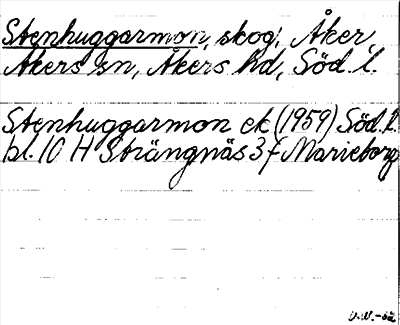 Stenhuggarmon, skog, Åker,
Åkers sn, Åkers hd, Söd. l.
Stenhuggarmon ek (1959) Söd. l.
bl. 10 H Strängnäs 3 f Marieborg
V.V.-62